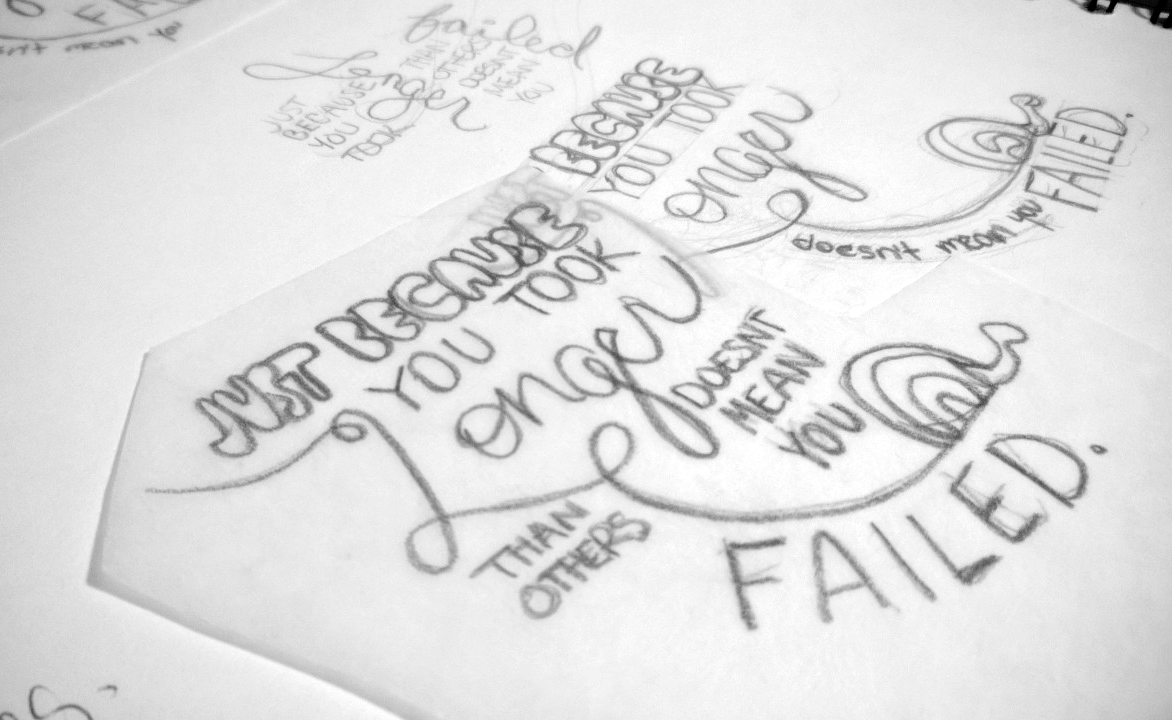 FA
sn't mean you
failed
Longer
THAN
OTHERS
DOESN'T
MEAN
YOU
JUST
BECAUSE
YOU
TOOK
BECAUSE
YOU TOOK
onger
doesn't mean you
FAILED.
JUST BECAUSE
YOU TOOK
Longer
THAN
OTHERS
DOESNT
MEAN
YOU
FAILED.
s.